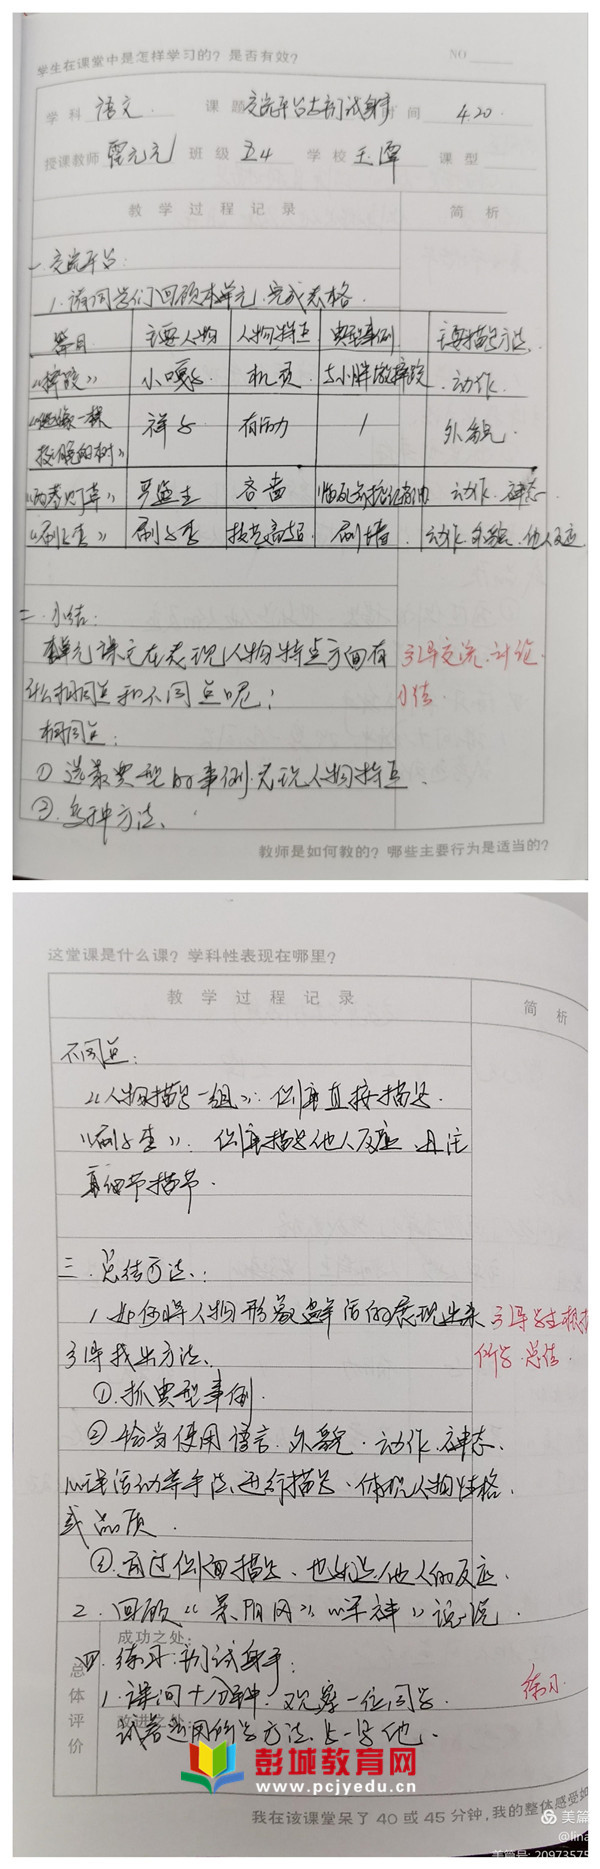 学生在课堂中是怎样学习的？是否有效？ NO
学科 语文 课题 交流平台与初试身手 时间 4.20
授课教师 霍元元 班级 五4 学校 玉潭 课型
教学过程记录 简析
一.交流平台:
1.请同学们回顾本单元,完成表格.
篇目 主要人物 人物特点 典型事例 主要描写方法
《摔跤》 小嘎子 机灵 与小胖墩摔跤 动作.
《他像一棵挺脱的树》 祥子 有活力 / 外貌.
《两茎灯草》 严监生 吝啬 临死前挑灯草 动作.神态
《刷子李》 刷子李 技艺高超 刷墙 动作.外貌.他人反应
二.小结:
本单元课文在表现人物特点方面有 引导交流.讨论.
什么相同点和不同点呢? 小结.
相同点:
①选最典型的事例.表现人物特点.
②多种方法.
教师是如何教的？哪些主要行为是适当的？
这堂课是什么课？学科性表现在哪里？
教学过程记录 简析
不同点:
《人物描写一组》:侧重直接描写.
《刷子李》:侧重描写他人反应.且注
重细节描节.
三.总结方法:
1.如何将人物形象鲜活的展现出来 引导学生根据
引导找出方法. 所学.总结.
①.抓典型事例.
②.恰当使用语言.外貌.动作.神态.
心理活动等手法进行描写.体现人物性格.
或品质.
③.通过侧面描写.也就是他人的反应.
2.回顾《景阳冈》 说说.
总体评价
成功之处:
四.练习:初试身手: 练习.
1.课间十分钟.观察一位同学.
改进之处:
试着运用所学方法.写一写他.
彭城教育网
www.pcjyedu.cn
我在该课堂呆了 40 或 45 分钟,我的整体感受如
美篇
@lina
美篇号: 20973575